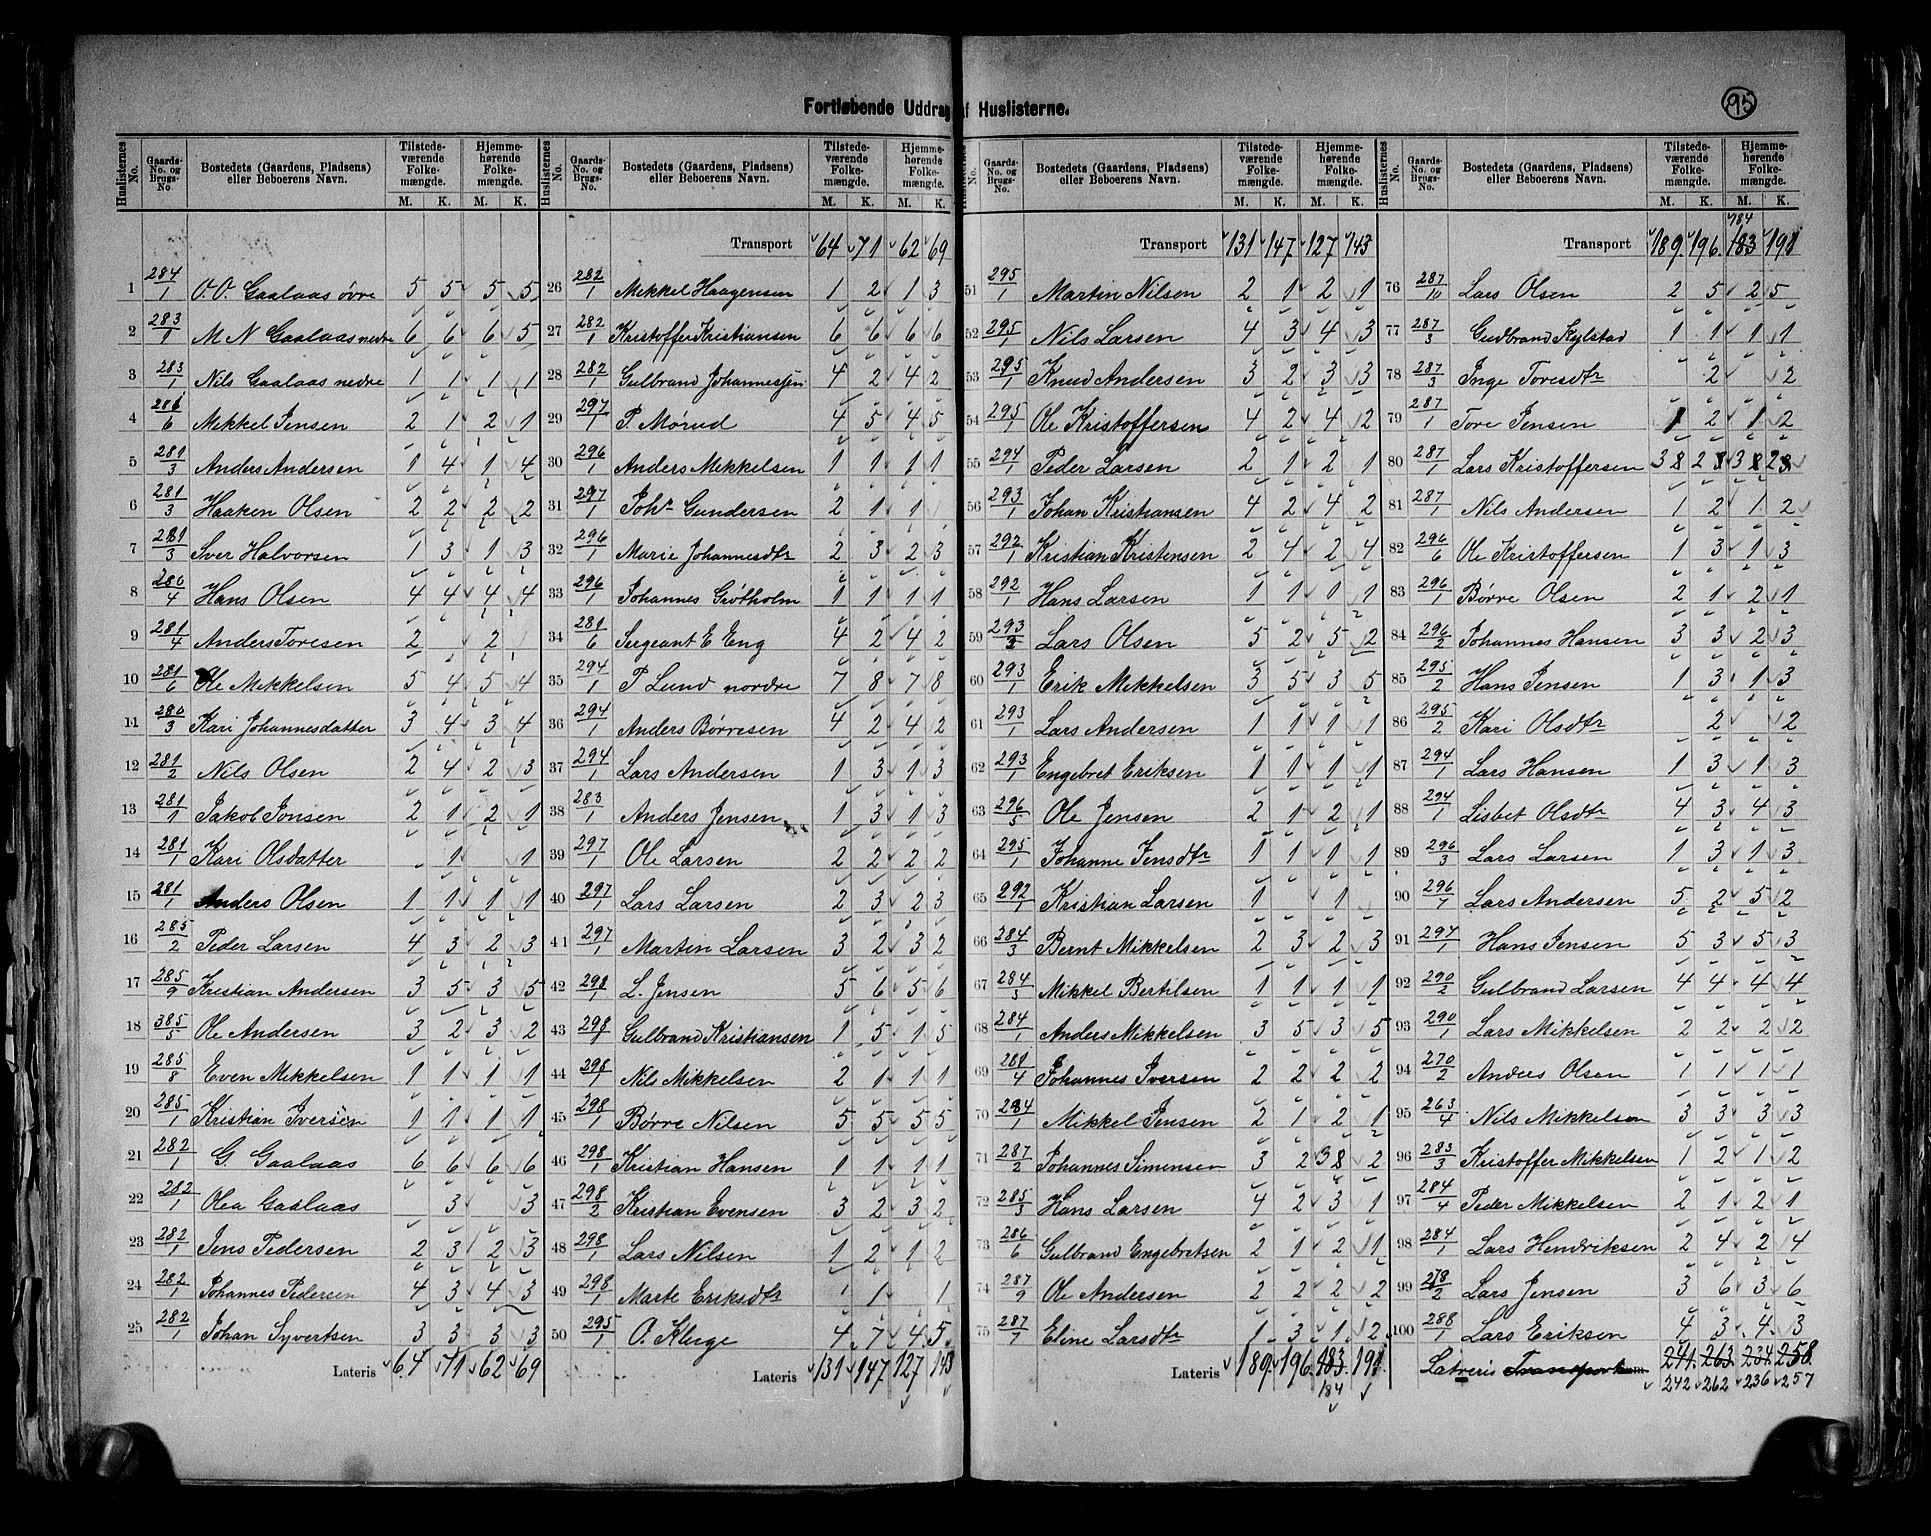 Fortløbende Uddrag af Huslisterne.
95
Huslisternes No. Gaards-No. og Brugs-No. Bostedets (Gaardens, Pladsen) eller Beboerens Navn. Tilstedeværende Folkemængde. M. K. Hjemmehørende Folkemængde. M. K.
1 284/1 O. O. Gaalaas øvre 5 5 5 5
2 283/1 M N Gaalaas nedre 6 6 6 5
3 283/1 Nils Gaalaas nedre 1 1 1 1
4 286/6 Mikkel Jensen 2 1 2 1
5 281/3 Anders Andersen 1 4 1 4
6 281/3 Haaken Olsen 2 2 2 2
7 281/3 Iver Halvorsen 1 3 1 3
8 280/4 Hans Olsen 4 4 4 4
9 281/4 Anders Toresen 2 2
10 281/6 Ole Mikkelsen 5 4 5 4
11 280/3 Kari Johannesdatter 3 4 3 4
12 281/2 Nils Olsen 2 4 2 3
13 281/1 Jakob Jonsen 2 1 2 1
14 281/1 Kari Olsdatter 1 1
15 281/1 Anders Olsen 1 1 1 1
16 285/2 Peder Larsen 4 3 2 3
17 285/9 Kristian Andersen 3 5 3 5
18 385/5 Ole Andersen 3 2 3 2
19 285/8 Even Mikkelsen 1 1 1 1
20 285/1 Kristian Iversen 1 1 1 1
21 282/1 G. Gaalaas 6 6 6 6
22 282/1 Olea Gaalaas 3 3
23 282/1 Jens Pedersen 2 3 2 3
24 282/1 Johannes Pedersen 4 3 4 3
25 282/1 Johan Syvertsen 3 3 3 3
Lateris 64 71 62 69
Transport 64 71 62 69
26 282/1 Mikkel Haagensen 1 2 1 3
27 282/1 Kristoffer Kristiansen 6 6 6 6
28 282/1 Gulbrand Johannessen 4 2 4 2
29 297/1 P. Mørud 4 5 4 5
30 296/1 Anders Mikkelsen 1 1 1 1
31 297/1 Johs Gundersen 2 1 1 1
32 296/1 Marie Johannesdtr 2 3 2 3
33 296/1 Johannes Grøtholm 1 1 1 1
34 281/6 Sergeant E Eng 4 2 4 2
35 294/1 P Lund nordre 7 8 7 8
36 294/1 Anders Børresen 4 2 4 2
37 294/1 Lars Andersen 1 3 1 3
38 283/1 Anders Jensen 1 3 1 3
39 297/1 Ole Larsen 2 2 2 2
40 297/1 Lars Larsen 2 3 2 3
41 297/1 Martin Larsen 3 2 3 2
42 298/1 L. Jensen 5 6 5 6
43 298/1 Gulbrand Kristiansen 1 5 1 5
44 298/1 Nils Mikkelsen 2 1 1 1
45 298/1 Børre Nilsen 5 5 5 5
46 298/1 Kristian Hansen 1 1 1 1
47 298/2 Kristian Evensen 3 2 3 2
48 298/1 Lars Nilsen 1 2 1 2
49 298/1 Marte Eriksdtr 1 1
50 295/1 O. Kluge 4 7 4 5
Lateris 131 147 127 143
Transport 131 147 127 143
51 295/1 Martin Nilsen 2 1 2 1
52 295/1 Nils Larsen 4 3 4 3
53 295/1 Knud Andersen 3 2 3 3
54 295/1 Ole Kristoffersen 4 2 4 2
55 294/1 Peder Larsen 2 1 2 1
56 293/1 Johan Kristiansen 4 2 4 2
57 292/1 Kristian Kristensen 2 4 2 4
58 292/1 Hans Larsen 1 1 1 1
59 293/3 Lars Olsen 5 2 5 2
60 293/1 Erik Mikkelsen 3 5 3 5
61 293/1 Lars Andersen 1 1 1 1
62 293/1 Engebret Eriksen 1 1 1 1
63 296/5 Ole Jensen 2 1 2 1
64 295/1 Johanne Jensdtr 1 1 1 1
65 292/1 Kristian Larsen 1 1
66 284/3 Bernt Mikkelsen 2 3 2 3
67 284/3 Mikkel Bertilsen 1 1 1 1
68 284/1 Anders Mikkelsen 3 5 3 5
69 281/4 Johannes Iversen 2 2 2 2
70 284/1 Mikkel Jensen 2 1 2 1
71 287/2 Johannes Simensen 3 2 3 2
72 285/3 Hans Larsen 4 2 3 1
73 286/6 Gulbrand Engebretsen 2 1 2 1
74 287/9 Ole Andersen 2 2 2 2
75 287/7 Eline Larsdtr 1 3 1 2
Lateris 189 196 183 191
184
184
Transport 189 196 183 191
76 287/10 Lars Olsen 2 5 2 5
77 287/3 Gudbrand Kylstad 1 1 1 1
78 287/3 Inge Toresdtr 2 2
79 287/1 Tore Jensen 1 2 1 2
80 287/1 Lars Kristoffersen 3 2 3 2
81 287/1 Nils Andersen 1 2 1 2
82 296/6 Ole Kristoffersen 1 3 1 3
83 296/1 Børre Olsen 2 1 2 1
84 296/2 Johannes Hansen 3 3 2 3
85 295/2 Hans Jensen 1 3 1 3
86 295/2 Kari Olsdtr 2 2
87 294/1 Lars Hansen 1 3 1 3
88 294/1 Lisbet Olsdtr 4 3 4 3
89 296/3 Lars Larsen 1 3 1 3
90 296/7 Lars Andersen 5 2 5 2
91 297/1 Hans Jensen 5 3 5 3
92 290/2 Gulbrand Larsen 4 4 4 4
93 290/1 Lars Mikkelsen 2 2 2 2
94 270/2 Anders Olsen 1 1 1 1
95 263/4 Nils Mikkelsen 3 3 3 3
96 283/3 Kristoffer Mikkelsen 1 2 1 2
97 284/4 Peder Mikkelsen 2 1 2 1
98 284/1 Lars Hendriksen 2 4 2 4
99 278/2 Lars Jensen 3 6 3 6
100 288/1 Lars Eriksen 4 3 4 3
Lateris Transport 241. 263. 234. 258.
242 262 236 257